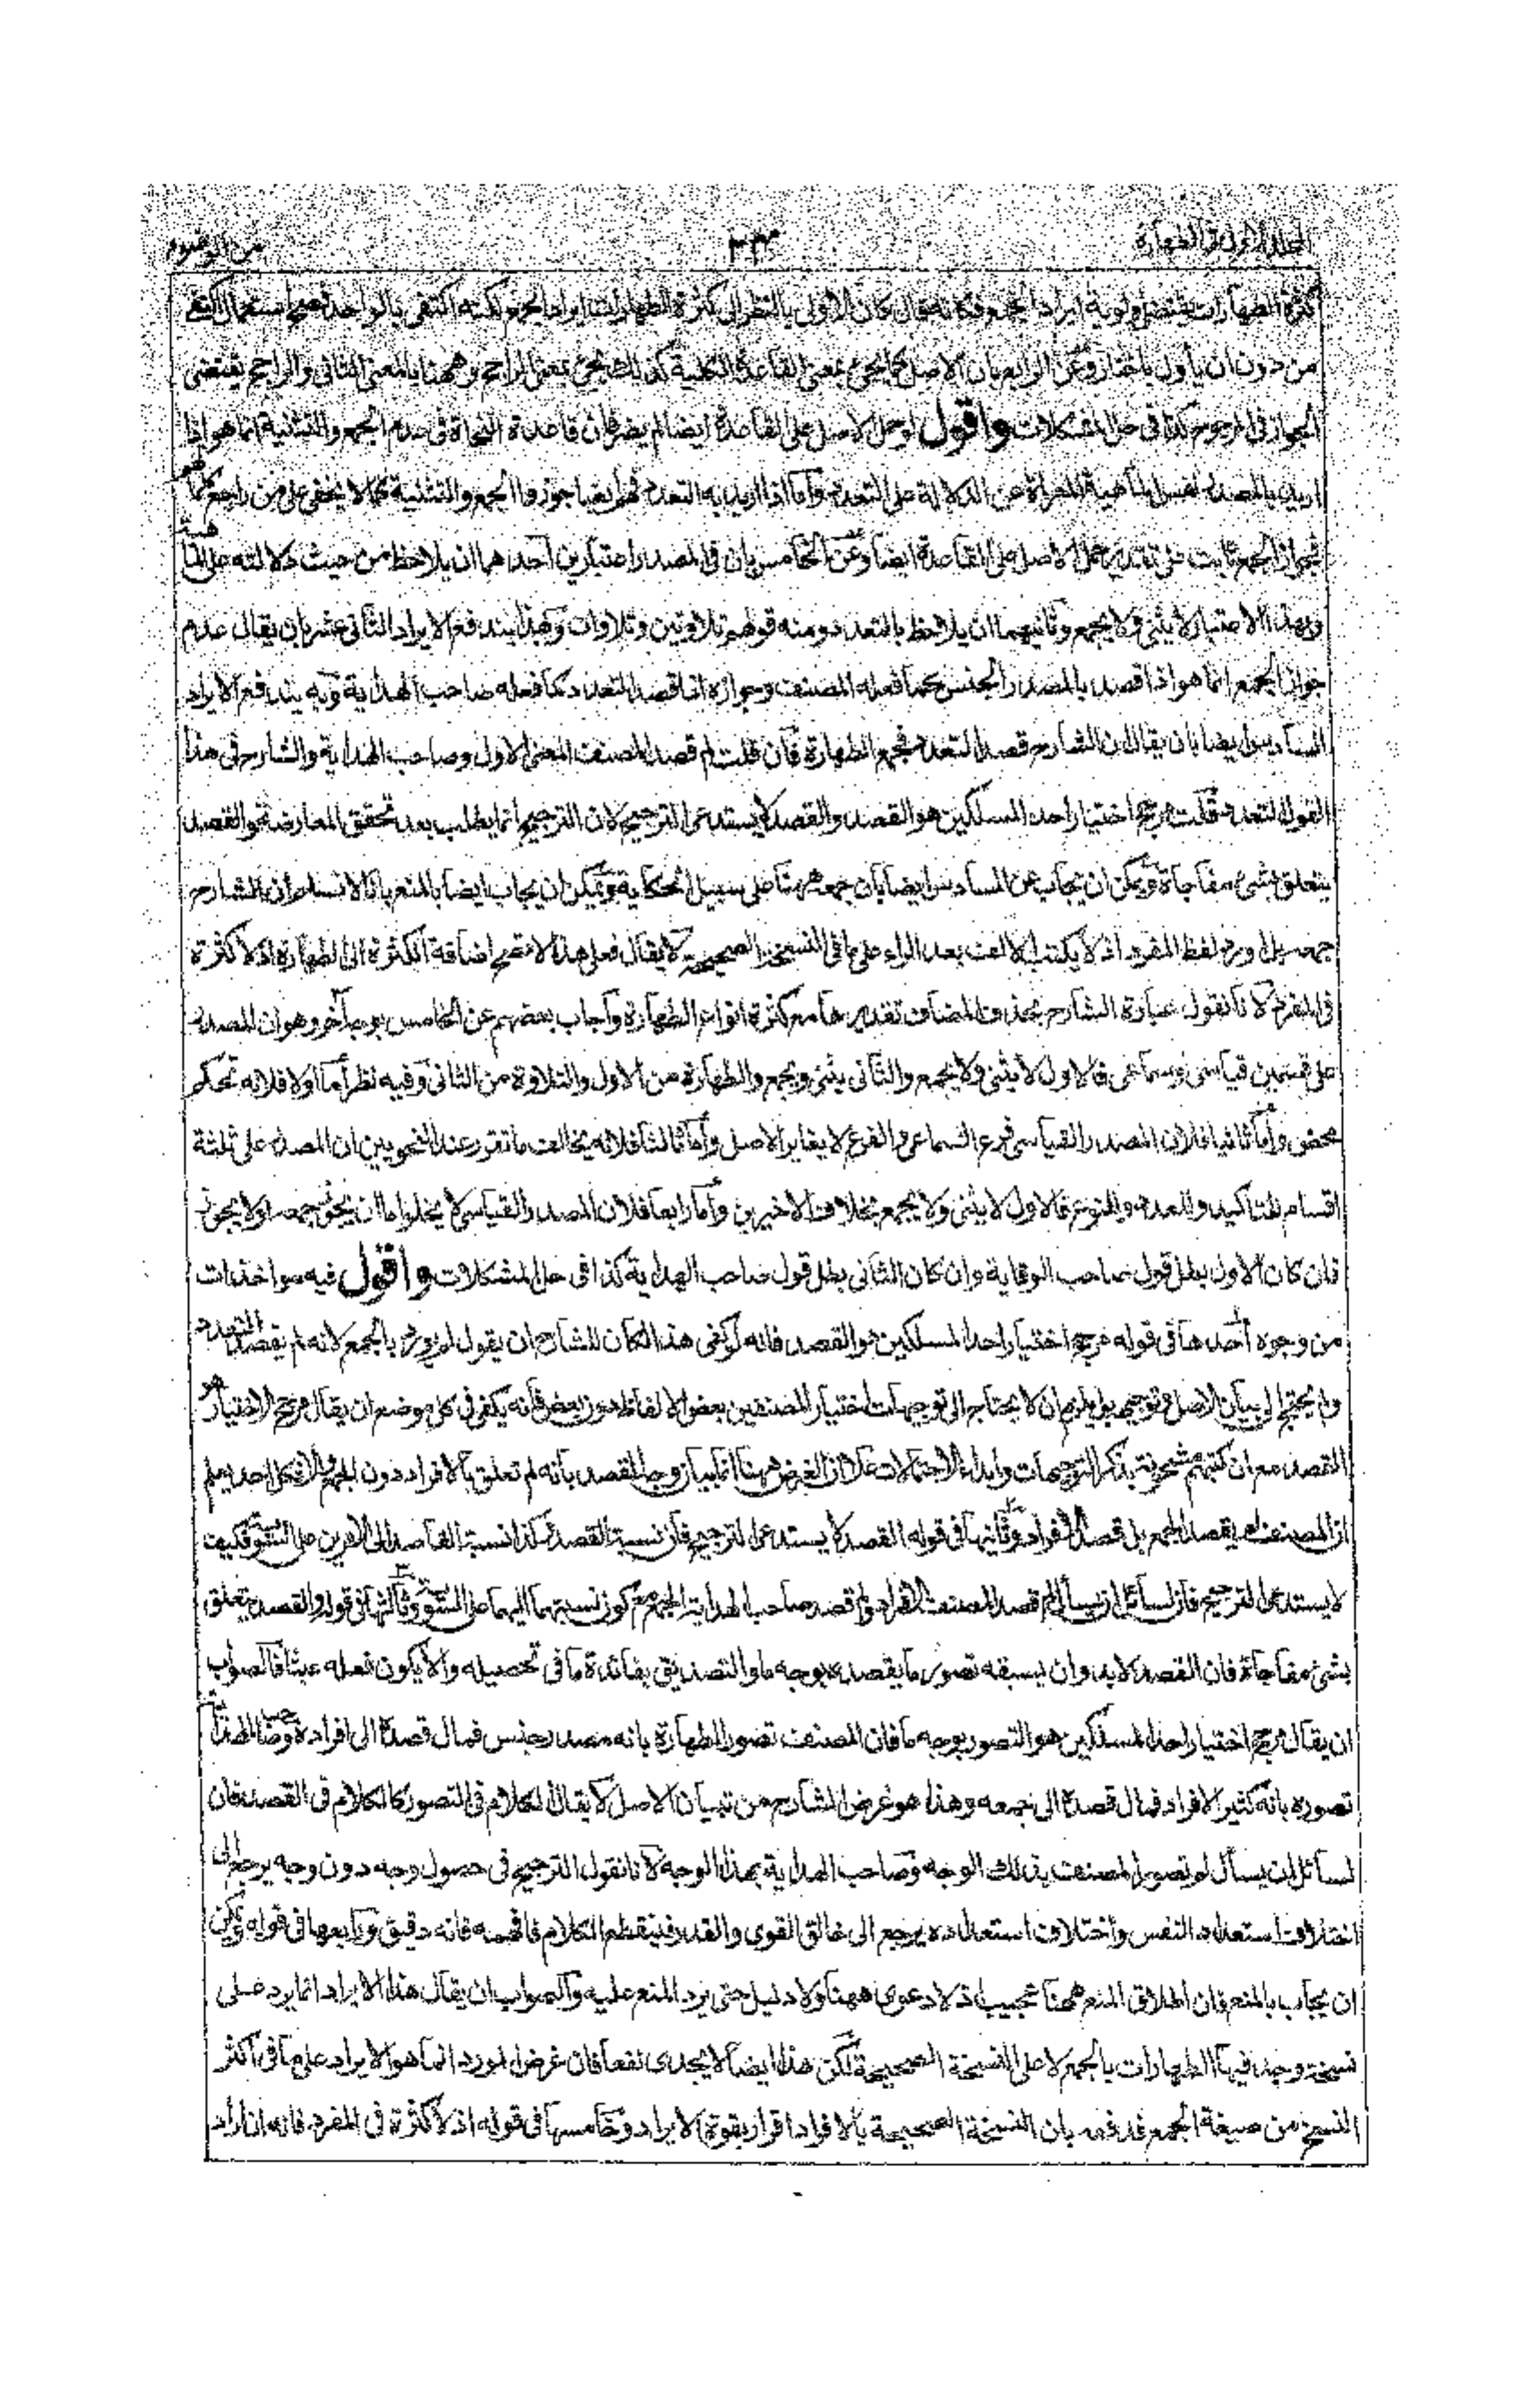 المجلد الاول من الطهارة ٣٣ من الوضوء
كثرة الطهارات يقتضي اولوية ايراد الجمع فكانه قال كان الاولى بالنظر الى كثرة الطهارات ايراد الجمع لكنه اكتفى بالواحد فصح استعمال
من دون ان يأول باختار وعن الرابع بان الاصل كما يجيء بمعنى القاعدة الكلية كذلك يجيء بمعنى الراجح وههنا بالمعنى الثاني والراجح يقتضي
الجواز في المرجوح كذا في حل المشكلات واقول لو حمل الاصل على القاعدة ايضا لم يضر فان قاعدة النحاة في عدم الجمع والتثنية انما هو اذا
اريد بالمصدر نفس الماهية المعراة عن الدلالة على التعدد واما اذا اريد به التعدد فهم ايضا جوزوا الجمع والتثنية كما لا يخفى على من راجع كتبهم
فجواز الجمع ثابت على تقدير حمل الاصل على القاعدة ايضا وعن الخامس بان في المصدر اعتبارين احدهما ان يلاحظ من حيث دلالته على الماهية
وبهذا الاعتبار لا يثنى ولا يجمع وثانيهما ان يلاحظ بالتعدد ومنه قولهم تلاوتين وتلاوات وبهذا يندفع الايراد الثاني عشر بان يقال عدم
جواز الجمع انما هو اذا قصد بالمصدر الجنس كما فعله المصنف وجوازه اذا قصد التعدد كما فعله صاحب الهداية وبه يندفع الايراد
السادس ايضا بان يقال ان الشارح قصد التعدد فجمع الطهارة فان قلت لم قصد المصنف المعنى الاول وصاحب الهداية والشارح في هذا
القول التعدد قلت مرجح اختيار احد المسلكين هو القصد والقصد لا يستدعي الترجيح لان الترجيح انما يطلب بعد تحقق المعارضة والقصد
يتعلق بشيء مفاجاة ويمكن ان يجاب عن السادس ايضا بان جمعه ههنا على سبيل الحكاية ويمكن ان يجاب ايضا بالمنع بانا لا نسلم ان الشارح
جمعه بل اورد لفظ المفرد اذ لا يكتب الالف بعد الراء على ما في النسخة الصحيحة لا يقال فعلى هذا لا تصح اضافة الكثرة الى الطهارة اذ لا كثرة
في المفرد لانا نقول عبارة الشارح بحذف المضاف تقديرها مع كثرة انواع الطهارة واجاب بعضهم عن الخامس بوجه آخر وهو ان المصدر
على قسمين قياسي وسماعي فالاول لا يثنى ولا يجمع والثاني يثنى ويجمع والطهارة من الاول والتلاوة من الثاني وفيه نظر اما اولا فلانه تحكم
محض واما ثانيا فلان المصدر القياسي فرع السماعي والفرع لا يغاير الاصل واما ثالثا فلانه يخالف ما تقرر عند النحويين ان المصدر على ثلثة
اقسام للتاكيد وللعدد وللنوع فالاول لا يثنى ولا يجمع بخلاف الاخيرين واما رابعا فلان المصدر القياسي لا يخلوا ما ان يجوز جمعه او لا يجوز
فان كان الاول بطل قول صاحب الوقاية وان كان الثاني بطل قول صاحب الهداية كذا في حل المشكلات واقول فيه مواخذات
من وجوه احدها في قوله مرجح اختيار احد المسلكين هو القصد فانه لو كفى هذا لكان للشارح ان يقول لم يورد بالجمع لانه لم يقصد التعدد
ولم يحتج الى بيان الاصل وتوجيهه بل يلزم ان لا يحتاج الى توجيهات اختيار المصنفين بعض الالفاظ دون بعض فانه يكفي في كل موضع ان يقال مرجح الاختيار هو
القصد مع ان كتبهم مشحونة بذكر التوجيهات وابداء الاحتمالات على ان الغرض ههنا انما بيان وجه القصد بانه لم تعلق بالافراد دون الجمع والا فكل احد يعلم
ان المصنف لم يقصد الجمع بل قصد الافراد وثانيها في قوله القصد لا يستدعي الترجيح فان نسبة القصد وكذا نسبة القاصد الى الامرين على السوية فكيف
لا يستدعي الترجيح فان لسائل ان يسأل لم قصد المصنف الافراد ولم قصد صاحب الهداية الجمع مع كون نسبتهما اليهما على السوية وثالثها في قوله والقصد يتعلق
بشيء مفاجاة فان القصد لا بد وان يسبقه تصور ما يقصده بوجه ما والتصديق بفائدة ما في تحصيله والا يكون فعله عبثا فالصواب
ان يقال مرجح اختيار احد المسلكين هو التصور بوجه ما فان المصنف تصور الطهارة بانه مصدر جنس فمال قصده الى افراده وصاحب الهداية
تصوره بانه كثير الافراد فمال قصده الى جمعه وهذا هو غرض الشارح من تبيان الاصل لا يقال الكلام في التصور كالكلام في القصد فان
لسائل ان يسأل لم تصور المصنف بذلك الوجه وصاحب الهداية بهذا الوجه لانا نقول الترجيح في حصول وجه دون وجه يرجع الى
اختلاف استعداد النفس واختلاف استعداده يرجع الى خالق القوى والقدر فينقطع الكلام فافهمه فانه دقيق ورابعها في قوله يمكن
ان يجاب بالمنع فان اطلاق المنع ههنا عجيب اذ لا دعوى ههنا ولا دليل حتى يرد المنع عليه والصواب ان يقال هذا الايراد انما يرد على
نسخة وجد فيها الطهارات بالجمع لا على النسخة الصحيحة لكن هذا ايضا لا يجدي نفعا فان غرض المورد انما هو الايراد على ما في اكثر
النسخ من صيغة الجمع فدفعه بان النسخة الصحيحة بالافراد اقرار بقوة الايراد وخامسها في قوله اذ لا كثرة في المفرد فانه ان اراد